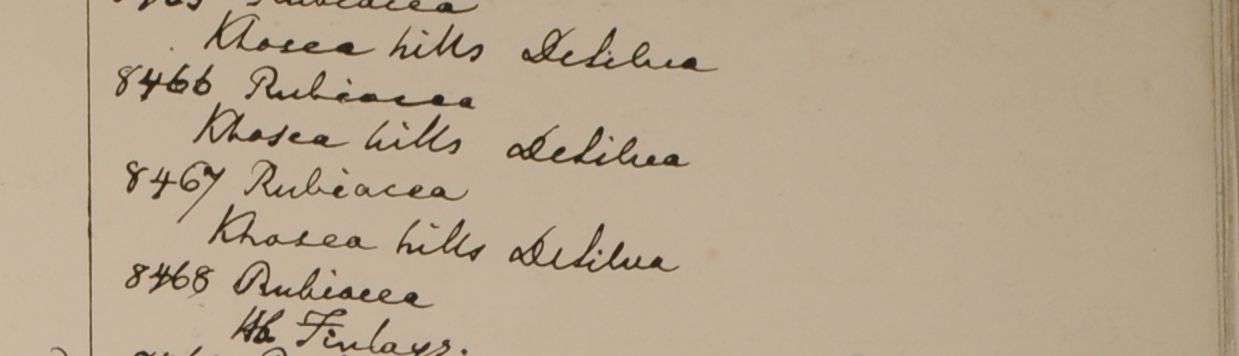 Rubiacea
Khosea hills DeSilva
8466 Rubiacea
Khosea hills DeSilva
8467 Rubiacea
Khosea hills DeSilva
8468 Rubiacea
Hb Finlays.